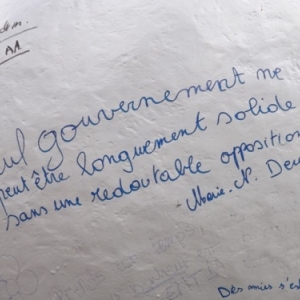 A1
gouvernement ne
peut être longuement solide
sans une redoutable opposition
Marie. N. Deu
Des amies s'est